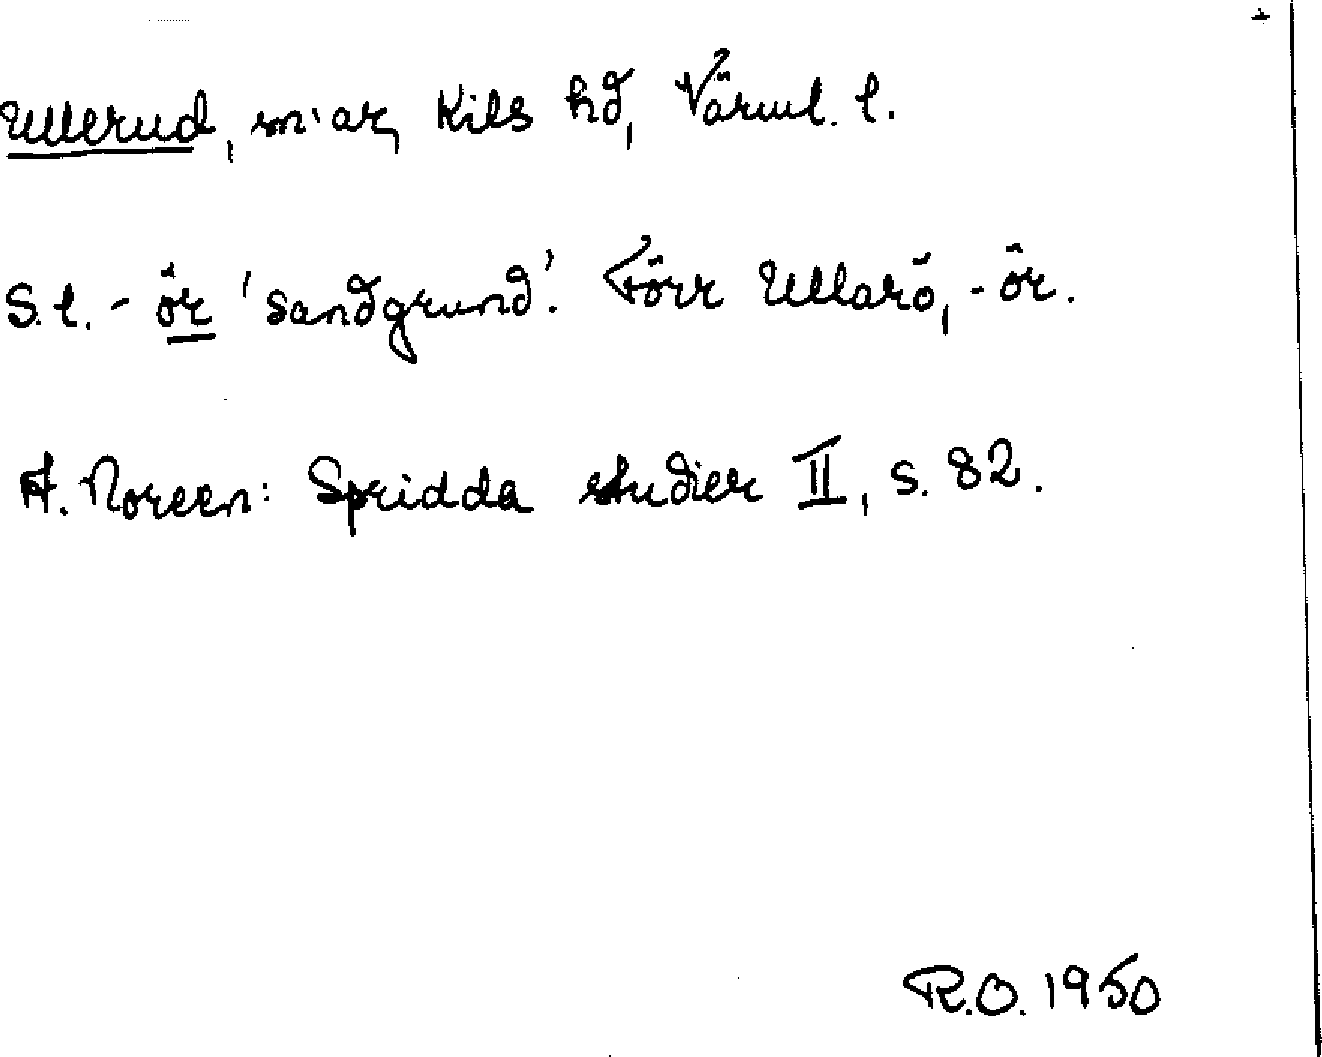 Ullerud, sn:ar, Kils hd, Värml. l.
S.l. - ör 'sandgrund'. Förr Ullarö, -ör.
A. Noreen: Spridda studier II, s. 82.
R.O. 1950